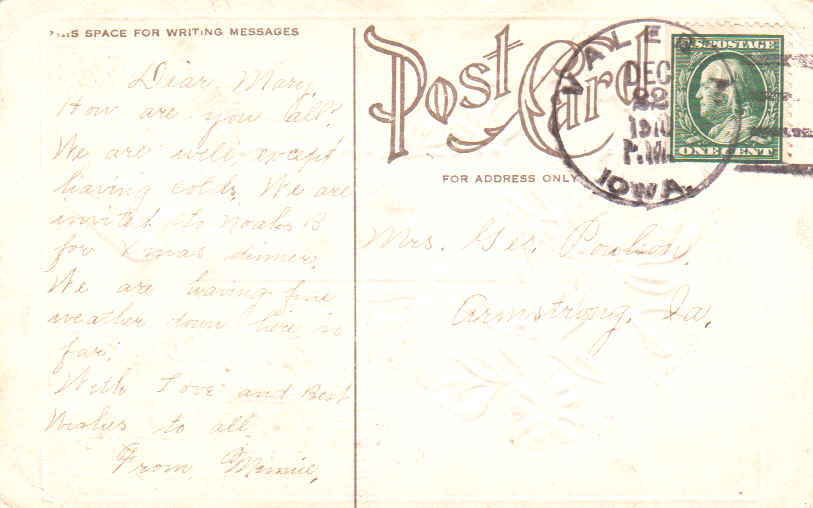 THIS SPACE FOR WRITING MESSAGES
Dear Mary,
How are you all?
We are well except
having colds. We are
invited to Noah's B
for Xmas dinner.
We are having fine
weather down here so
far.
With Love and Best
Wishes to all
From Minnie,
Post Card
FOR ADDRESS ONLY
Mrs. Geo.
Armstrong, Ia.
DEC
22
1910
P.M.
IOWA.
U.S. POSTAGE
ONE CENT